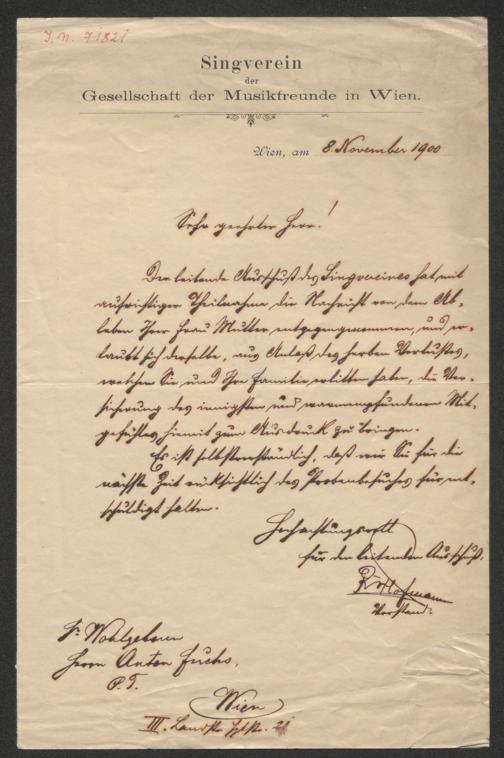 I.N. 71821
Singverein
der
Gesellschaft der Musikfreunde in Wien.
Wien, am 8. November 1900
Sehr geehrter Herr!
Der leitende Ausschuß des Singvereines hat mit
aufrichtiger Theilnahme die Nachricht von dem Ab-
leben Ihrer Frau Mutter entgegengenommen, und er-
laubt sich derselbe, aus Anlaß des herben Verlustes,
welchen Sie und Ihre Familie erlitten haben, die Ver-
sicherung des innigsten und warmempfundenen Mit-
gefühles hiemit zum Ausdruck zu bringen.
Es ist selbstverständlich, daß wir Sie für die
nächste Zeit rücksichtlich des Probenbesuches für ent-
schuldigt halten.
Hochachtungsvoll
für den leitenden Ausschuß.
Hofmann
Vorstand.
Sr Wohlgeboren
Herrn Anton Fuchs,
P.T.
Wien
III. Landstr. Hptstr. 21